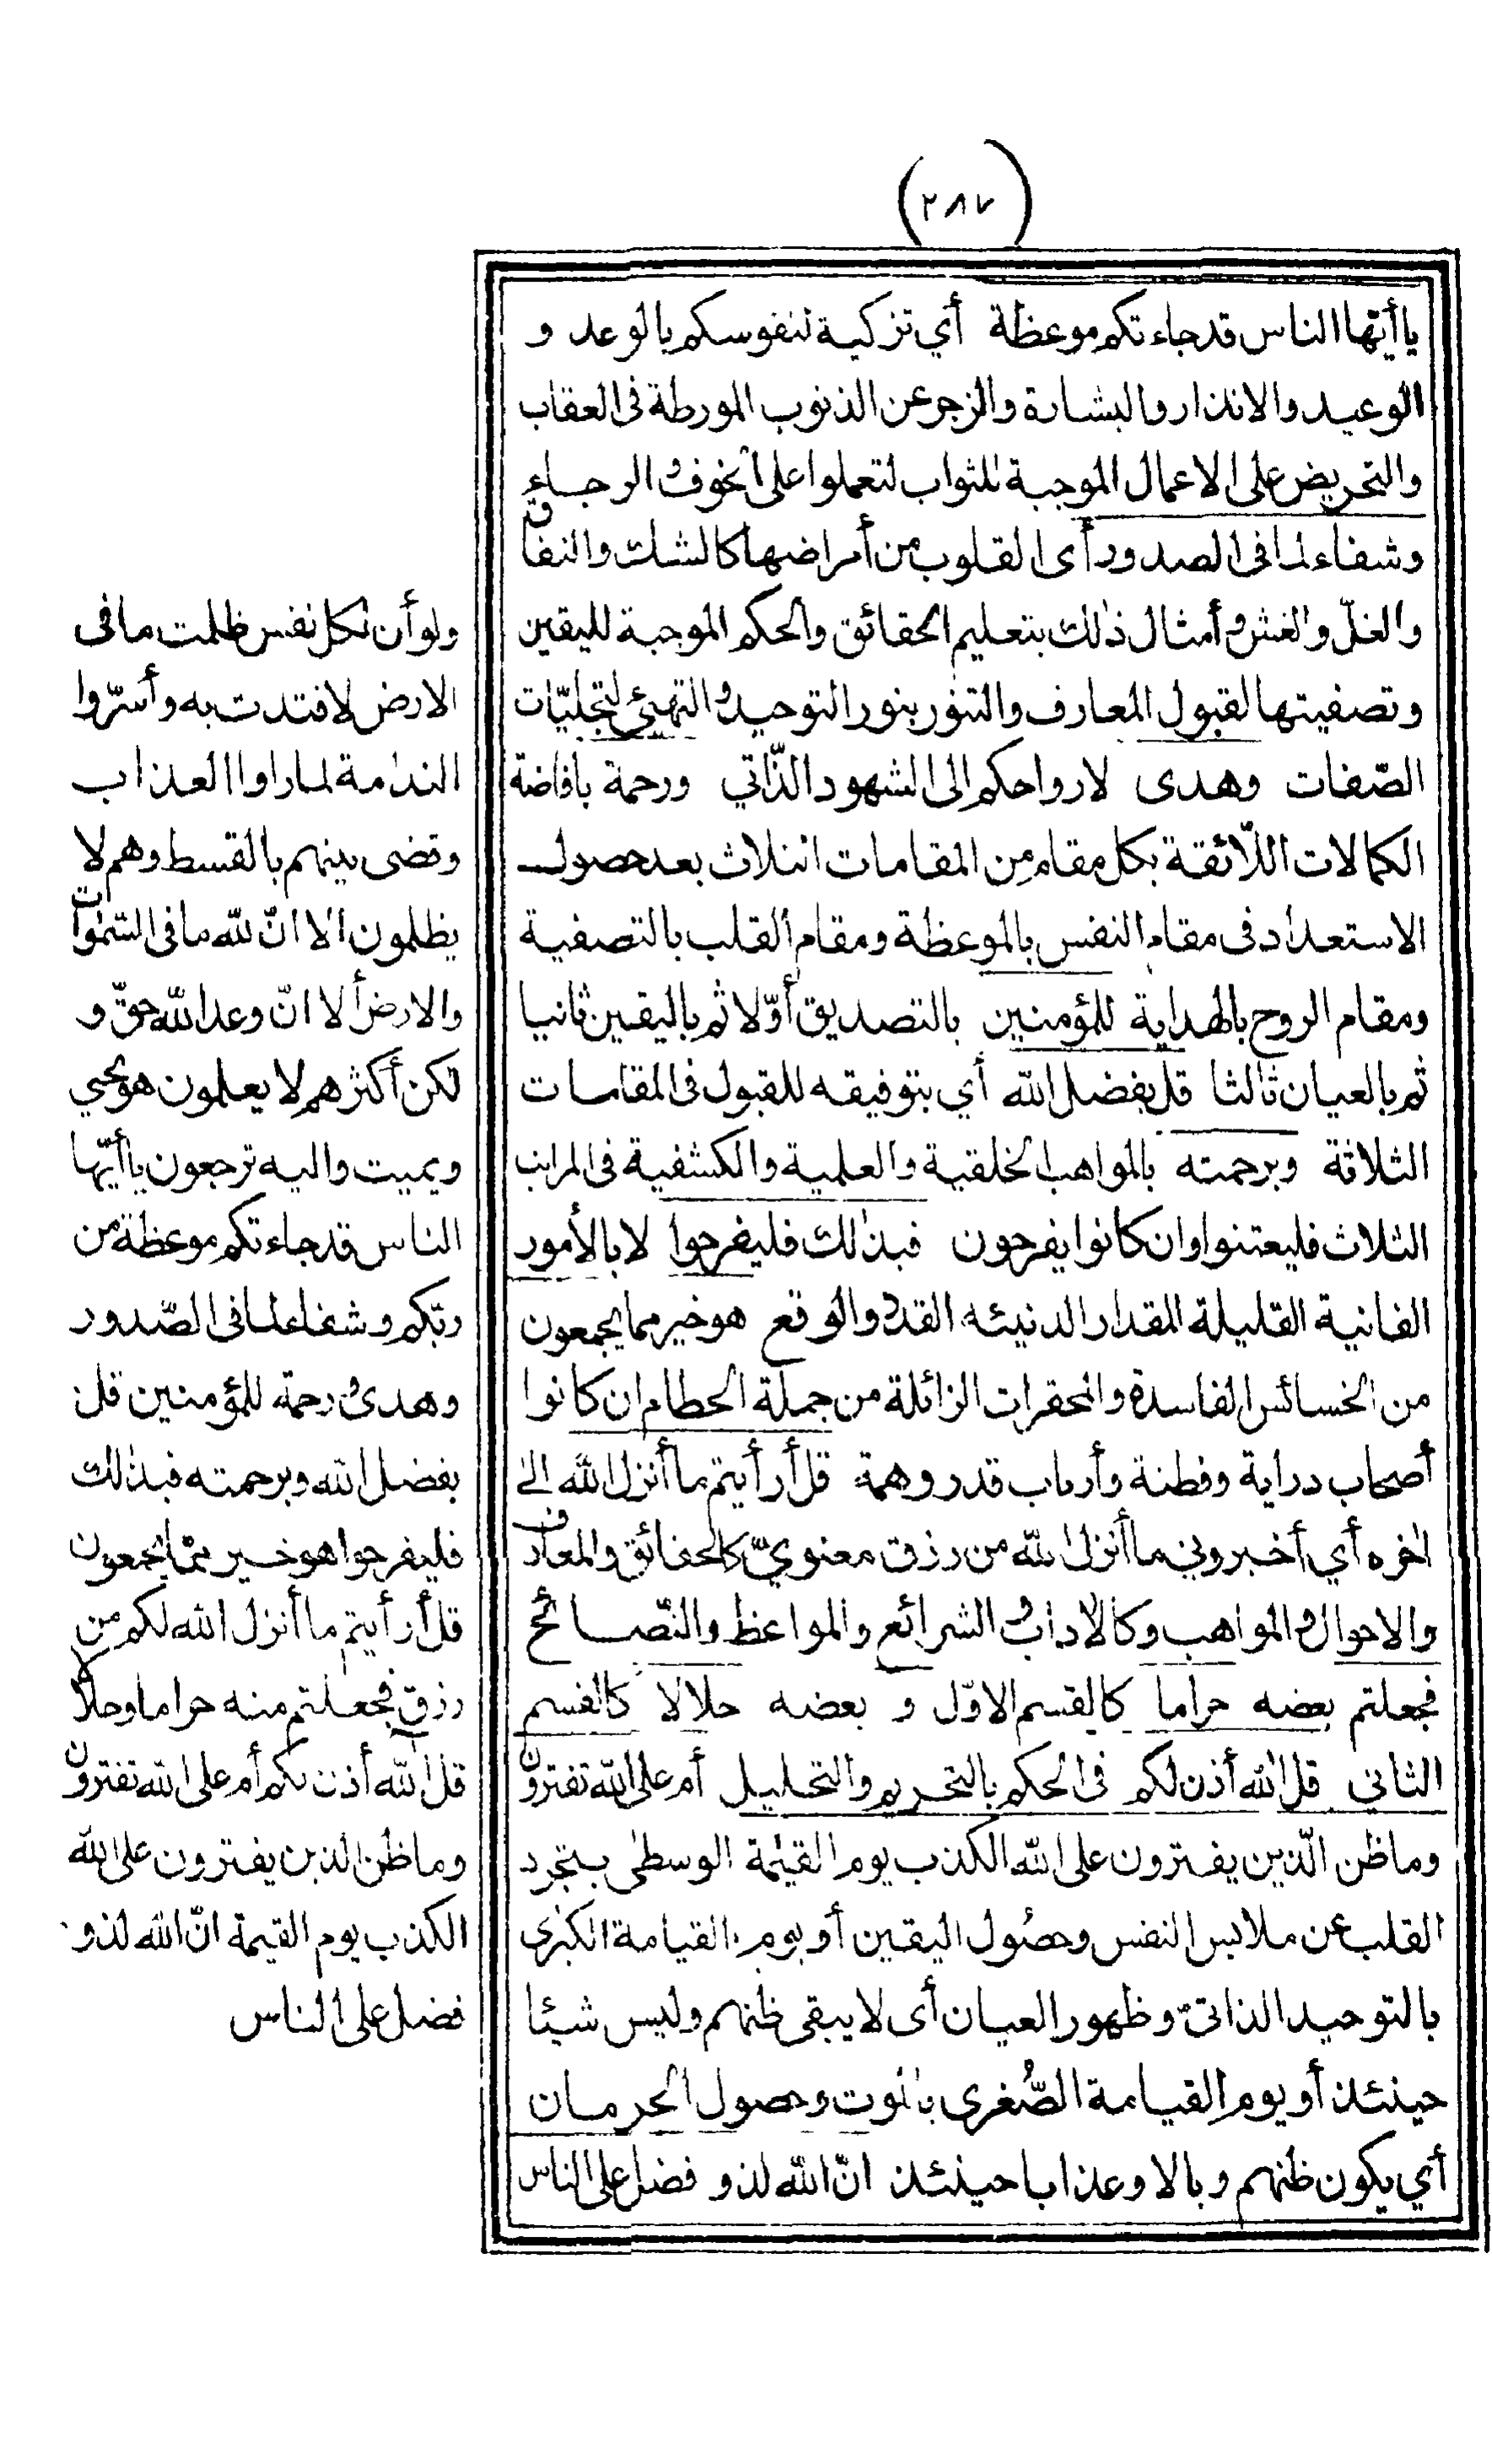 (٢٨٧)
يا أيّها الناس قد جاءتكم موعظة أي تزكية لنفوسكم بالوعد و
الوعيد والانذار والبشارة والزجر عن الذنوب المورطة فى العقاب
والتحريض على الاعمال الموجبة للثواب لتعملوا على الخوف والرجاء
وشفاء لما فى الصدور أى القلوب من أمراضها كالشك والنفاق
والغلّ والغش وأمثال ذلك بتعليم الحقائق والحكم الموجبة لليقين
وتصفيتها لقبول المعارف والتنور بنور التوحيد والتهيئ لتجليّات
الصّفات وهدى لارواحكم الى الشهود الذّاتي ورحمة بافاضة
الكمالات اللّائقة بكل مقام من المقامات الثلاث بعد حصول
الاستعداد فى مقام النفس بالموعظة ومقام القلب بالتصفية
ومقام الروح بالهداية للمؤمنين بالتصديق أوّلا ثم باليقين ثانيا
ثم بالعيان ثالثا قل بفضل الله أي بتوفيقه للقبول فى المقامات
الثلاثة وبرحمته بالمواهب الخلقية والعلمية والكشفية فى المراتب
الثلاث فليعتنوا وان كانوا يفرحون فبذلك فليفرحوا لا بالأمور
الفانية القليلة المقدار الدنيئه القدر والوقع هو خير مما يجمعون
من الخسائس الفاسدة والمحقرات الزائلة من جملة الحطام ان كانوا
أصحاب دراية وفطنة وأرباب قدر وهمة قل أرأيتم ما أنزل الله الى
اخره أي أخبروني ما أنزل الله من رزق معنويّ كالحقائق والمعارف
والاحوال والمواهب وكالاداب والشرائع والمواعظ والنّصائح
فجعلتم بعضه حراما كالقسم الاوّل و بعضه حلالا كالقسم
الثاني قل الله أذن لكم فى الحكم بالتحريم والتحليل أم على الله تفترون
وما ظن الّذين يفترون على الله الكذب يوم القيمة الوسطى بتجرد
القلب عن ملابس النفس وحصُول اليقين أو يوم القيامة الكبرى
بالتوحيد الذاتىّ وظهور العيان أى لا يبقى ظنهم وليس شيئا
حينئذ أو يوم القيامة الصّغرى بالموت وحصول الحرمان
أي يكون ظنهم وبالا وعذابا حينئذ انّ الله لذو فضل على الناس
ولو أن لكل نفس ظلمت ما فى
الارض لافتدت به وأسرّوا
الندامة لما راوا العذاب
وقضى بينهم بالقسط وهم لا
يظلمون ألا انّ لله ما فى السّموات
والارض ألا انّ وعد الله حقّ و
لكن أكثرهم لا يعلمون هو يحيي
ويميت واليه ترجعون يا أيّها
الناس قد جاءتكم موعظة من
ربّكم وشفاء لما فى الصّدور
وهدى ورحمة للمؤمنين قل
بفضل الله وبرحمته فبذلك
فليفرحوا هو خير ممّا يجمعون
قل أرأيتم ما أنزل الله لكم من
رزق فجعلتم منه حراما وحلالا
قل الله أذن لكم أم على الله تفترون
وما ظن الذين يفترون على الله
الكذب يوم القيمة انّ الله لذو
فضل على الناس